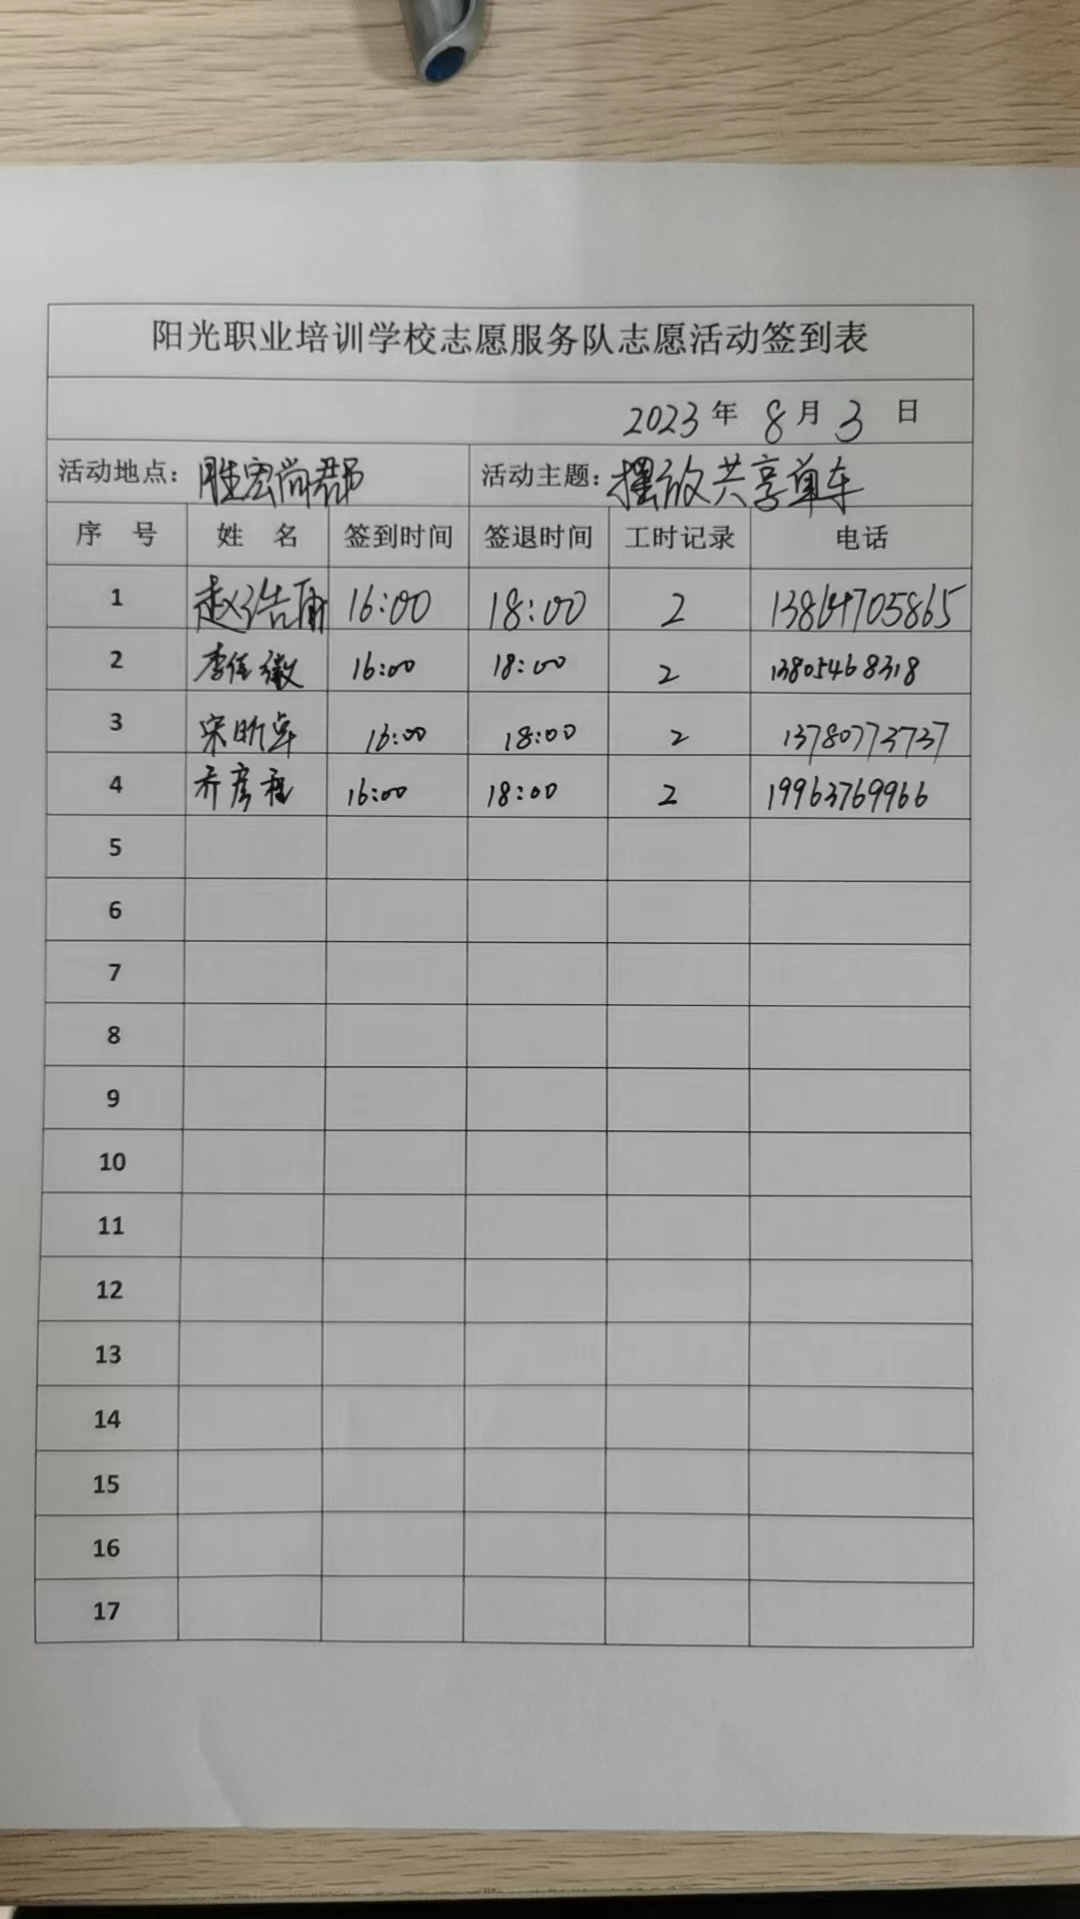 阳光职业培训学校志愿服务队志愿活动签到表
2023 年 8 月 3 日
活动地点: 胜宏尚郡 活动主题: 摆放共享单车
序 号 姓 名 签到时间 签退时间 工时记录 电话
1 赵浩雨 16:00 18:00 2 13864705865
2 李任徽 16:00 18:00 2 13805468318
3 宋昕卓 16:00 18:00 2 13780773737
4 乔彦程 16:00 18:00 2 19963769966
5
6
7
8
9
10
11
12
13
14
15
16
17